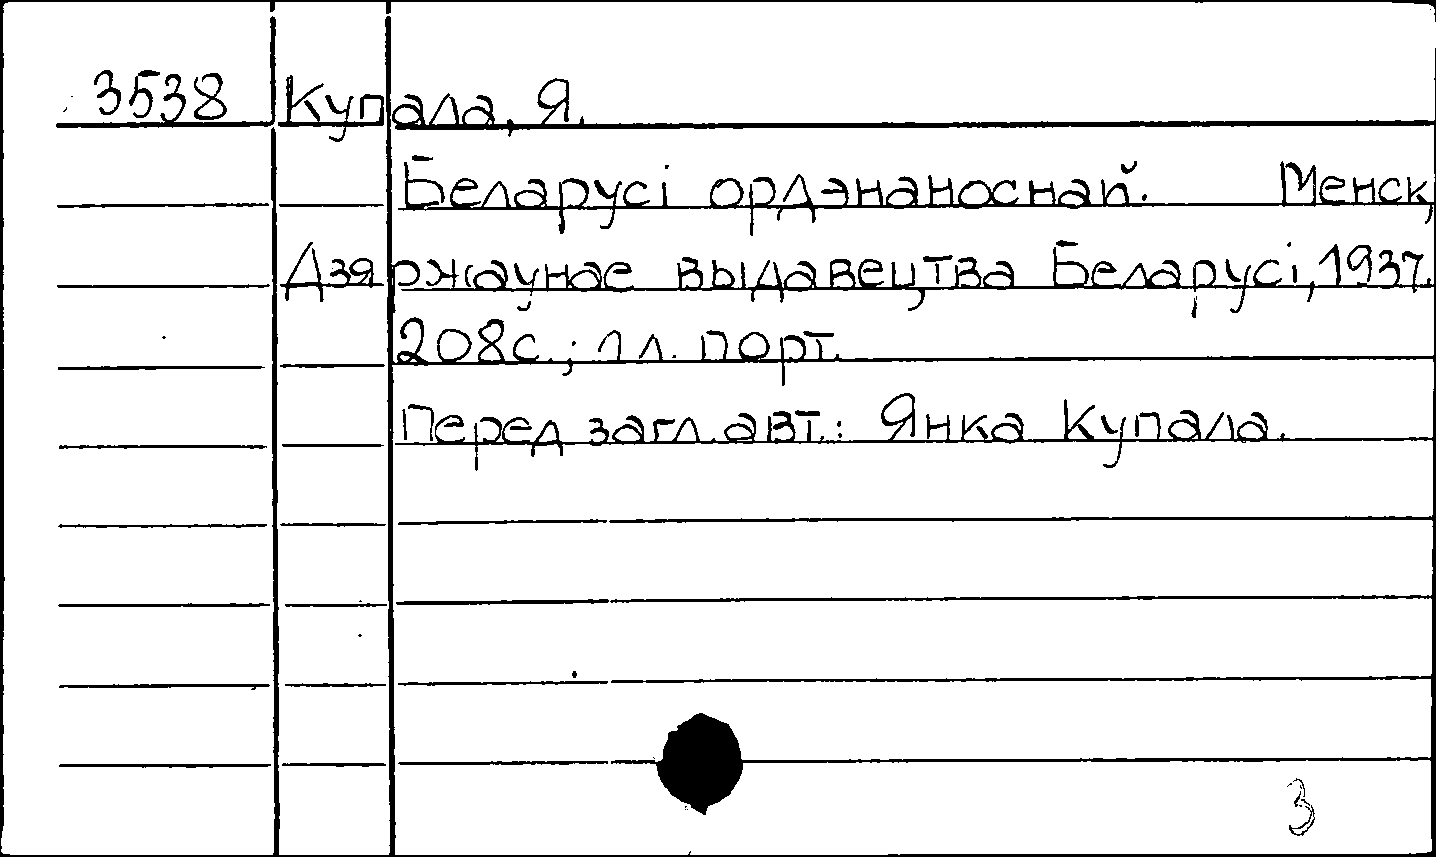 3538 Купала, Я.
Беларусі ордэнаноснай. Менск,
Дзяржаунае выдавецтва Беларусі, 1937.
208с.; 1 л. порт.
Перед загл. авт.: Янка Купала.
3